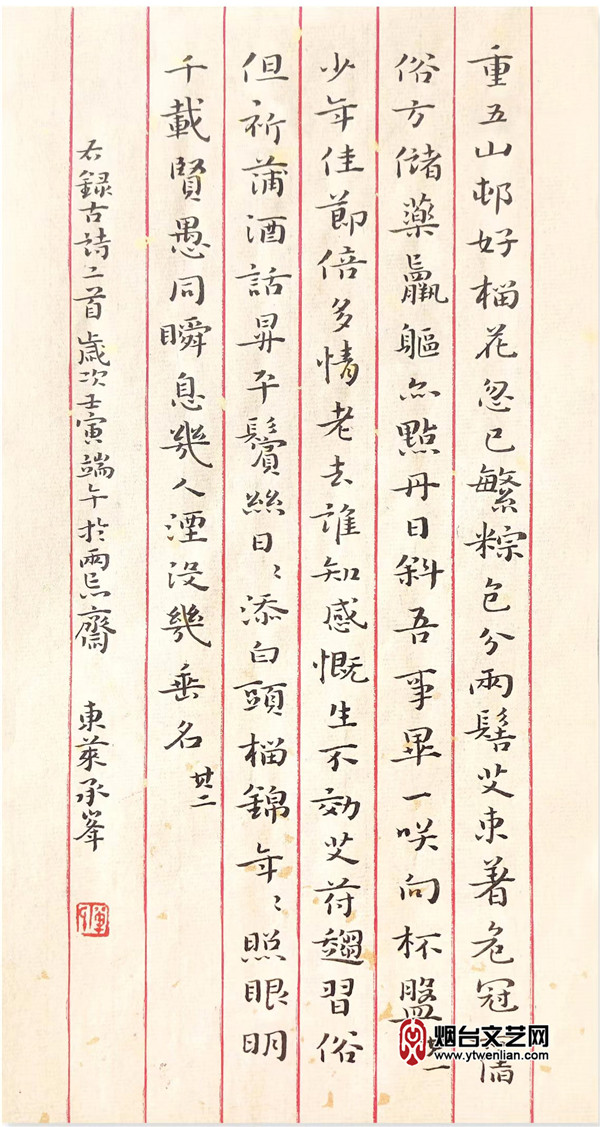 重五山邨好榴花忽已繁粽包分兩髻艾束著危冠
俗方儲藥羸軀亦點丹日斜吾事畢一咲向杯盤 其一
少年佳節倍多情老去誰知感慨生不効艾符趨習俗
但祈蒲酒話昇平鬢絲日〻添白頭榴錦年〻照眼明
千載賢愚同瞬息幾人湮沒幾垂名 其二
右録古詩二首歲次壬寅端午於兩忘齋 東萊承峯
烟台文艺网
www.ytwenlian.com